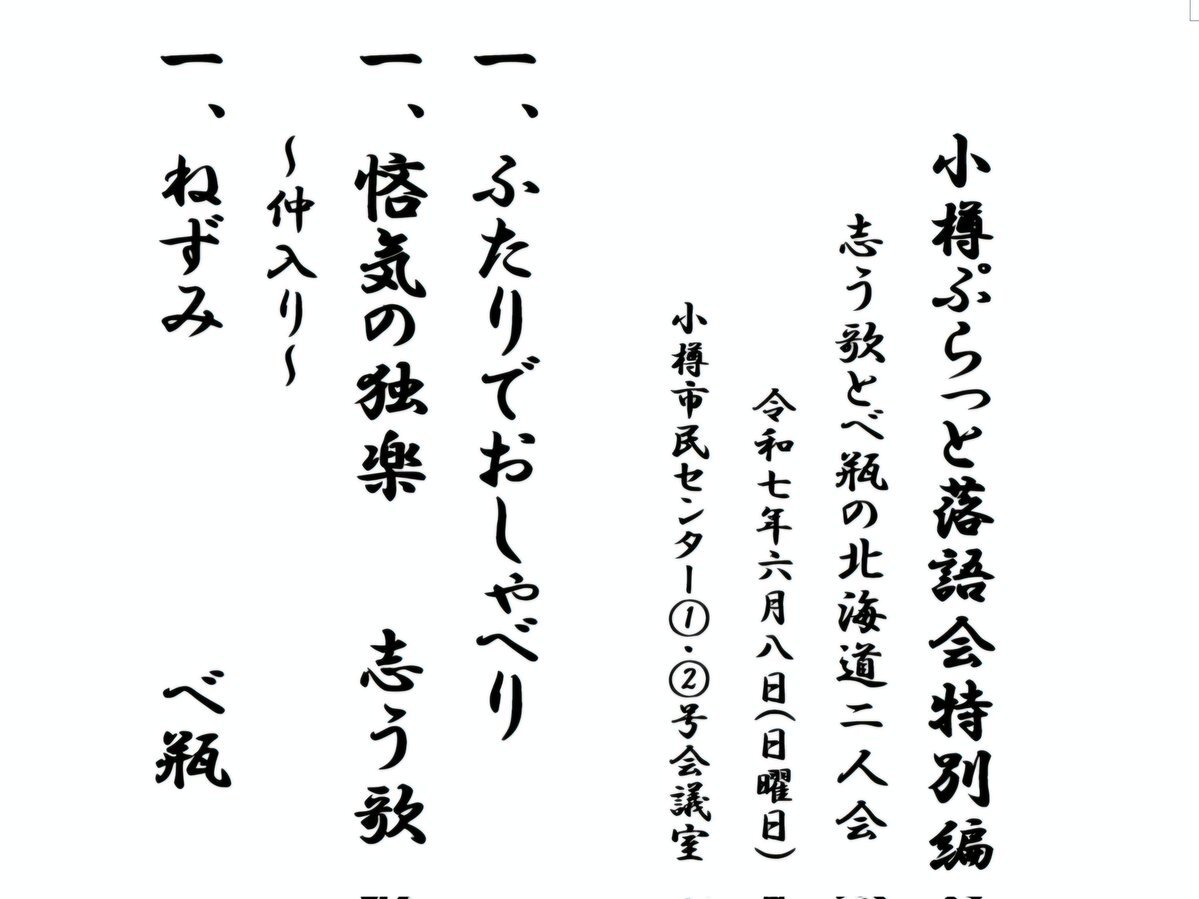 小樽ぷらっと落語会特別編
志う歌とべ瓶の北海道二人会
令和七年六月八日(日曜日)
小樽市民センター①・②号会議室
一、ふたりでおしゃべり
一、悋気の独楽 志う歌
～仲入り～
一、ねずみ べ瓶